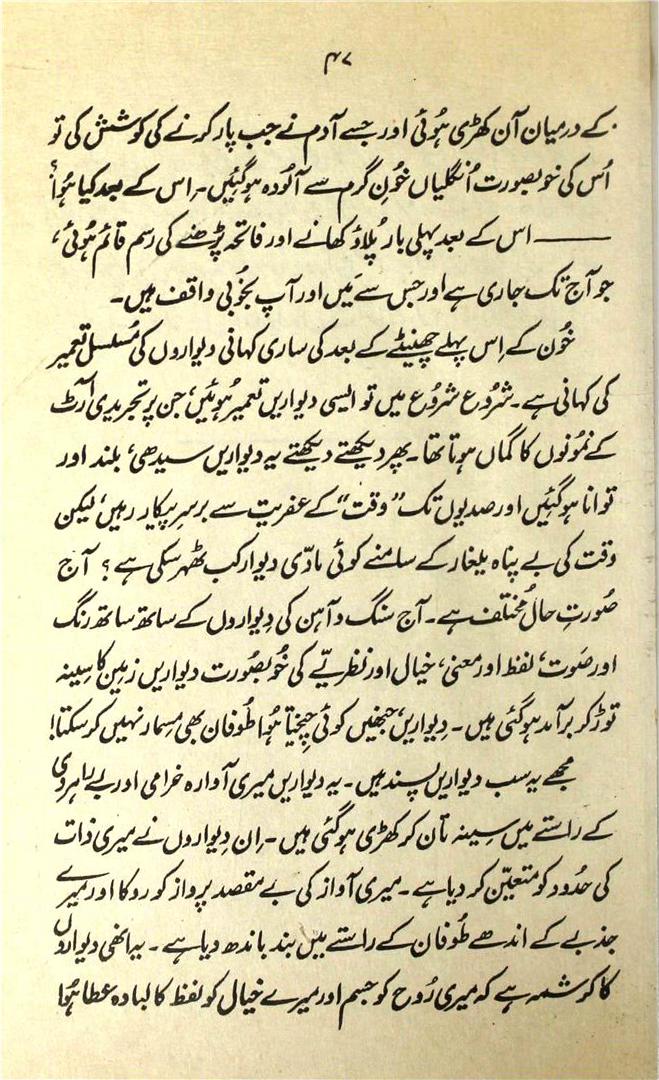 ۴۷
کے درمیان آن کھڑی ہُوئی اور جسے آدم نے جب پار کرنے کی کوشش کی تو
اُس کی خوبصورت اُنگلیاں خُونِ گرم سے آلُودہ ہوگیئں۔ اِس کے بعد کیا ہُوا؟
——— اس کے بعد پہلی بار پُلاؤ کھانے اور فاتحہ پڑھنے کی رسم قائم ہُوئی،
جو آج تک جاری ہے اور جس سے مَیں اور آپ بخُوبی واقف ہیں۔
خُون کے اِس پہلے چھینٹے کے بعد کی ساری کہانی دیواروں کی مُسلسل تعمیر
کی کہانی ہے۔ شرُوع شرُوع میں تو ایسی دیواریں تعمیر ہُوئیں، جن پر تجریدی آرٹ
کے نمُونوں کا گماں ہوتا تھا۔ پھر دیکھتے دیکھتے یہ دیواریں سیدھی، بلند اور
توانا ہوگئیں اور صدیوں تک ”وقت“ کے عفریت سے برسرِ پیکار رہیں، لیکن
وقت کی بے پناہ یلغار کے سامنے کوئی مادّی دیوار کب ٹھہر سکی ہے؟ آج
صُورتِ حال مُختلف ہے۔ آج سنگ و آہن کی دِیواروں کے ساتھ ساتھ رنگ
اور صَوت، لفظ اور معنی، خیال اور نظریّے کی خُوبصُورت دیواریں زمین کا سِینہ
توڑ کر برآمد ہوگئی ہیں۔ دِیواریں، جنھیں کوئی چیختا ہُوا طُوفان بھی مِسمار نہیں کرسکتا!
مجھے یہ سب دیواریں پسند ہیں۔ یہ دیواریں میری آوارہ خرامی اور بے راہروی
کے راستے میں سِینہ تان کر کھڑی ہوگئی ہیں۔ اِن دِیواروں نے میری ذات
کی حدُود کو متعیّن کر دیا ہے۔ میری آواز کی بے مقصد پرواز کو روکا اور میرے
جذبے کے اندھے طُوفان کے راستے میں بند باندھ دیا ہے۔ یہ انھی دیواروں
کا کرشمہ ہے کہ میری رُوح کو جسم اور میرے خیال کو لفظ کا لبادہ عطا ہُوا